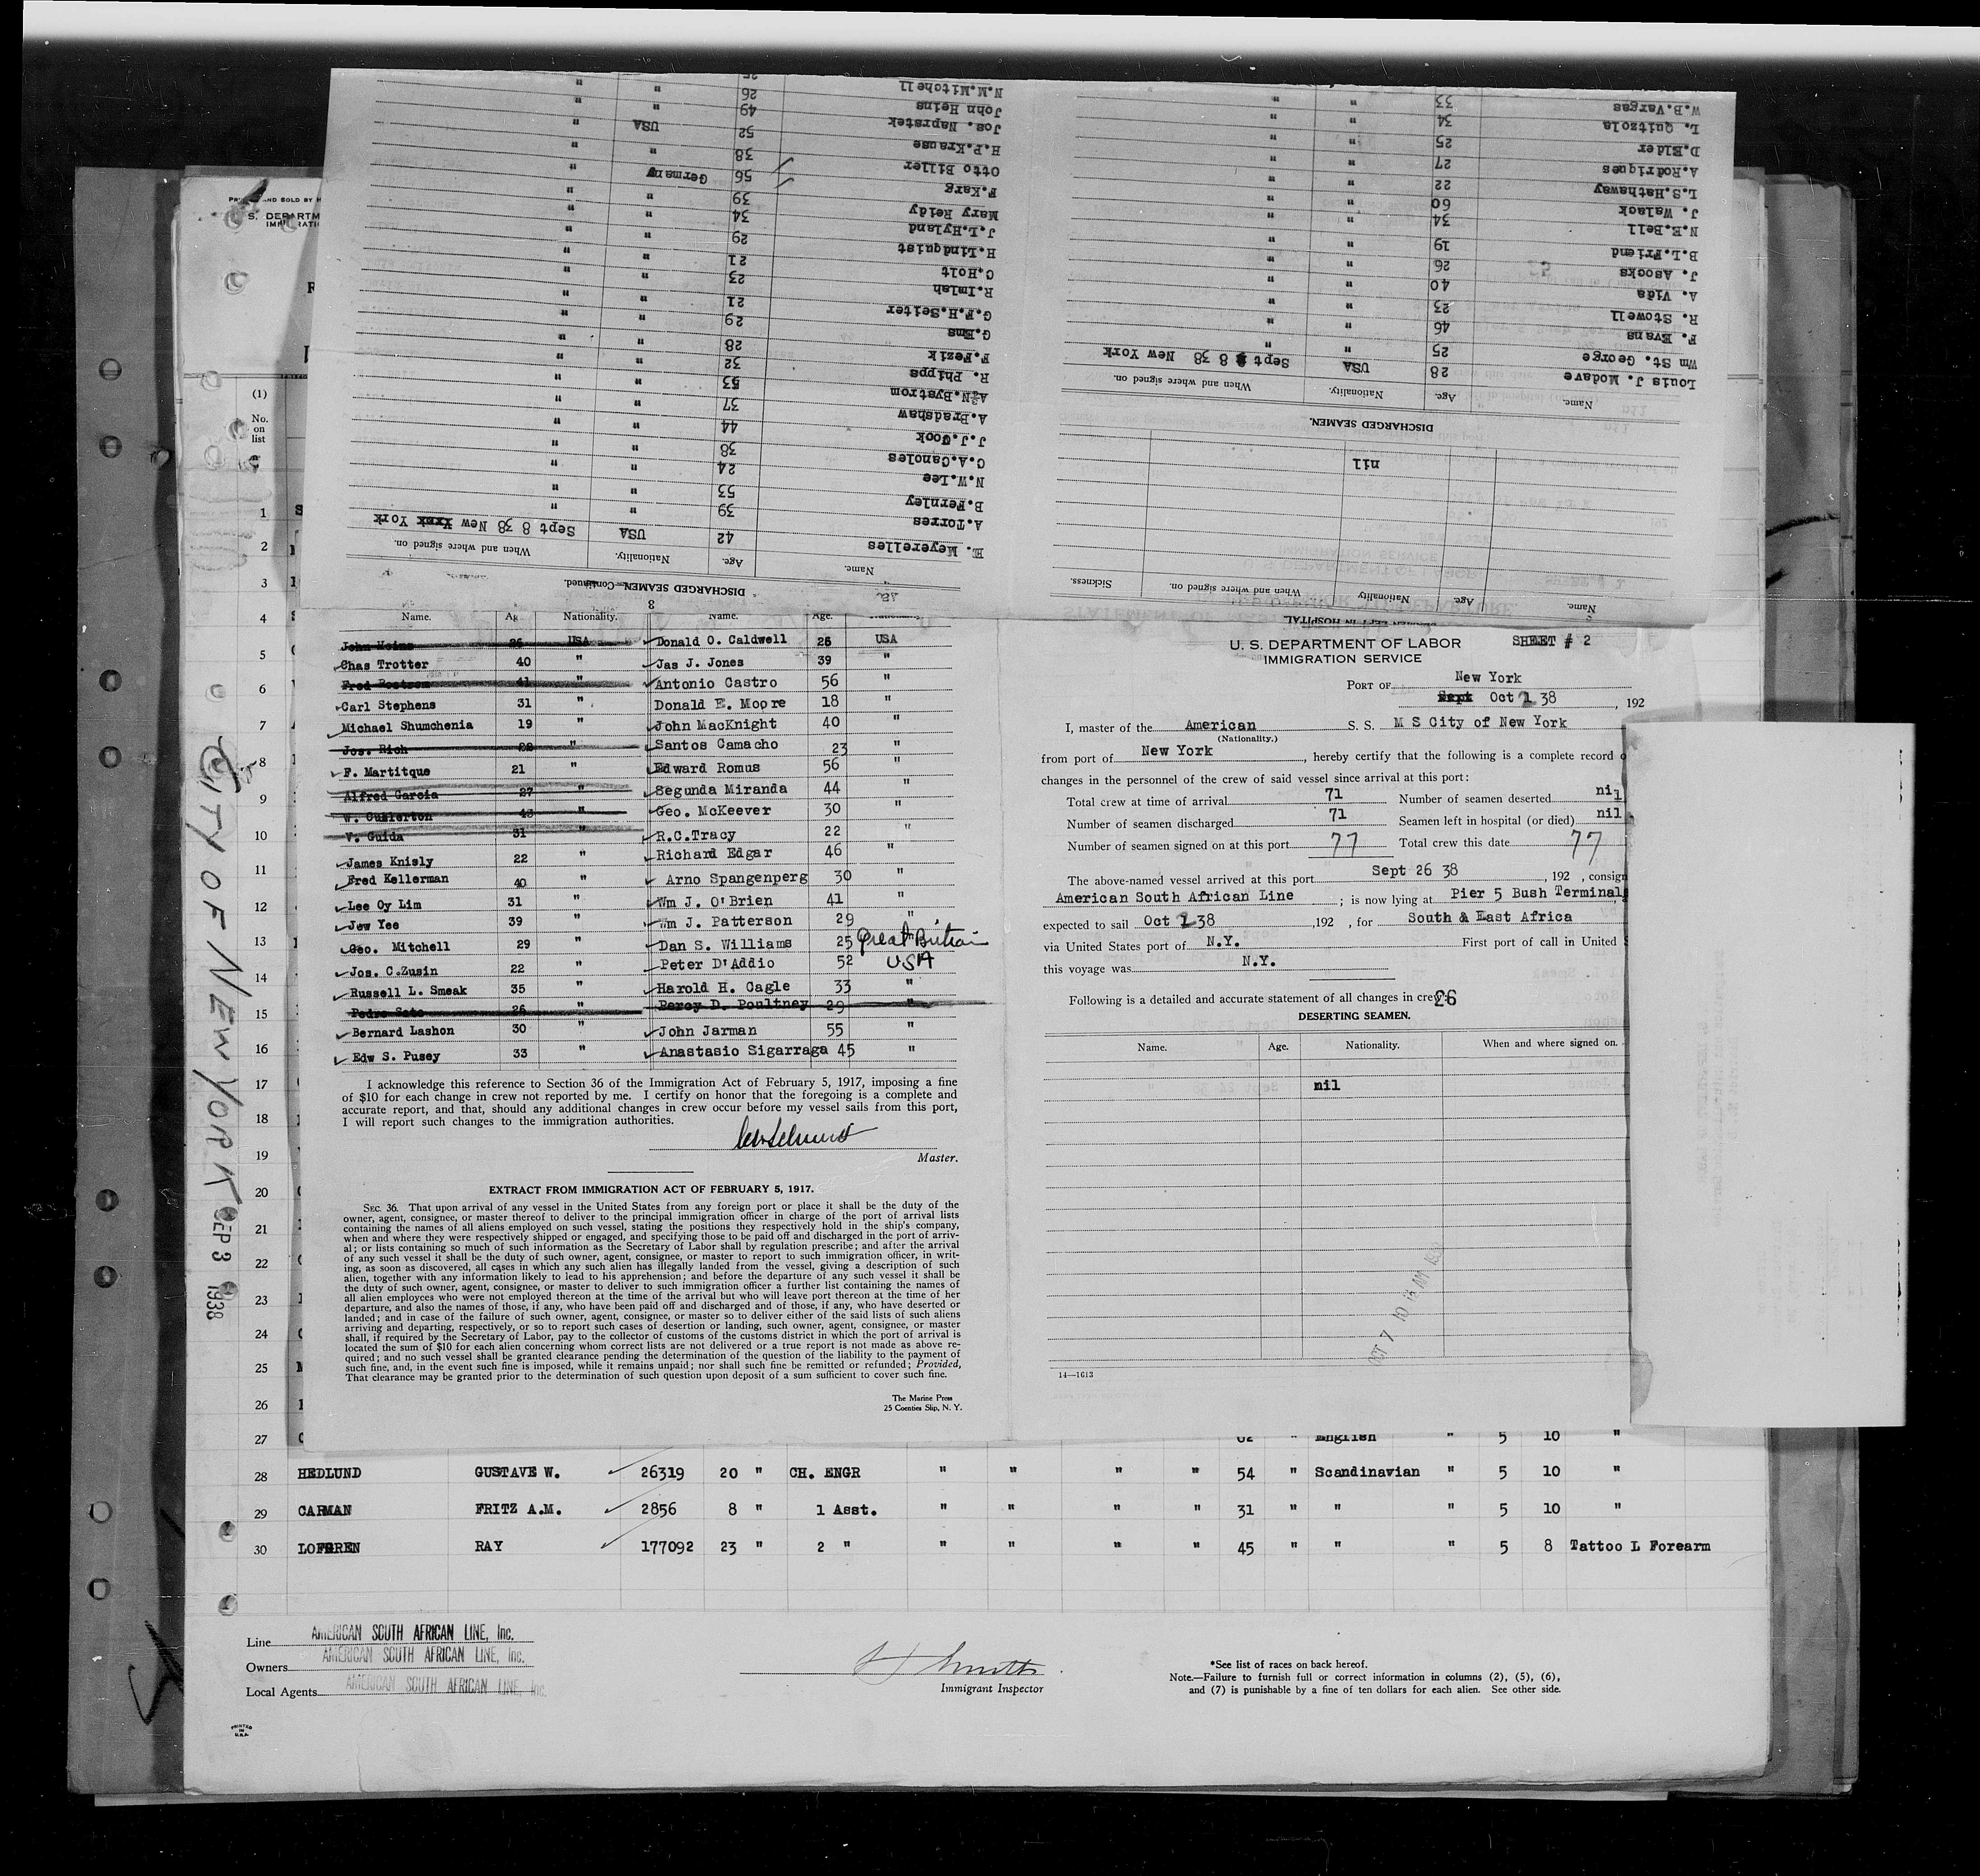 DISCHARGED SEAMEN—Continued.
3
Name. Age. Nationality. When and where signed on.
E. Meyerelles 42 USA Sept 8 38 New York
A.Torres 39 " "
B.Fernley 53 " "
N.W.Lee 24 " "
C.A.Canoles 38 " "
J.J.Cook 44 " "
A.Bradshaw 37 " "
N.Bystrom 53 " "
R. Phipps 32 " "
F.Fezik 28 " "
G.Ems 29 " "
G.F.H.Seiter 21 " "
R.Imlah 23 " "
C.Holt 21 " "
H.Lindquist 29 " "
J.L.Hyland 34 " "
Mary Reidy 39 " "
F.Karg 56 Germany "
Otto Biller 38 " "
H.P.Krause 52 USA "
Jos. Napratek 49 " "
John Heins 26 " "
N.M.Mitchell
SEAMEN LEFT IN HOSPITAL
Name. Age. Nationality When and where signed on. Sickness.
nil
DISCHARGED SEAMEN.
Name. Age. Nationality. When and where signed on.
Louis J. Modave 28 USA Sept 8 38 New York
Wm St. George 25 " "
F. Evans 46 " "
R. Stowell 23 " "
A. Vida 40 " "
J. Asocks 26 " "
B.L.Friend 19 " "
N.E.Bell 34 " "
J. Walsok 60 " "
L.S.Hathaway 22 " "
A.Rodriques 27 " "
D.Elder 25 " "
L. Quitzola 34 " "
W.B.Vargas 33 " "
Name. Nationality. Name. Age.
John Heins 26 USA Donald O. Caldwell 26 USA
Chas Trotter 40 " Jas J. Jones 39 "
Fred Rostrom 41 " Antonio Castro 56 "
Carl Stephens 31 " Donald E. Moore 18 "
Michael Shumchenia 19 " John MacKnight 40 "
Jos. Rich 22 " Santos Camacho 23 "
F. Martitque 21 " Edward Romus 56 "
Alfred Garcia 27 " Segunda Miranda 44 "
W. Cullerton 43 " Geo. McKeever 30 "
V. Guida 31 " R.C.Tracy 22 "
James Knisly 22 " Richard Edgar 46 "
Fred Kellerman 40 " Arno Spangenperg 30 "
Lee Oy Lim 31 " Wm J. O'Brien 41 "
Jew Yee 39 " Wm J. Patterson 29 "
Geo. Mitchell 29 " Dan S. Williams 25 Great Britain
Jos. C.Zusin 22 " Peter D'Addio 52 USA
Russell L. Smeak 35 " Harold H. Cagle 33 "
Pedro Soto 26 " Percy D. Poultney 29 "
Bernard Lashon 30 " John Jarman 55 "
Edw S. Pusey 33 " Anastasio Sigarraga 45 "
I acknowledge this reference to Section 36 of the Immigration Act of February 5, 1917, imposing a fine
of $10 for each change in crew not reported by me. I certify on honor that the foregoing is a complete and
accurate report, and that, should any additional changes in crew occur before my vessel sails from this port,
I will report such changes to the immigration authorities.
Master.
EXTRACT FROM IMMIGRATION ACT OF FEBRUARY 5, 1917.
SEC. 36. That upon arrival of any vessel in the United States from any foreign port or place it shall be the duty of the
owner, agent, consignee, or master thereof to deliver to the principal immigration officer in charge of the port of arrival lists
containing the names of all aliens employed on such vessel, stating the positions they respectively hold in the ship's company,
when and where they were respectively shipped or engaged, and specifying those to be paid off and discharged in the port of arriv-
al; or lists containing so much of such information as the Secretary of Labor shall by regulation prescribe; and after the arrival
of any such vessel it shall be the duty of such owner, agent, consignee, or master to report to such immigration officer, in writ-
ing, as soon as discovered, all cases in which any such alien has illegally landed from the vessel, giving a description of such
alien, together with any information likely to lead to his apprehension; and before the departure of any such vessel it shall be
the duty of such owner, agent, consignee, or master to deliver to such immigration officer a further list containing the names of
all alien employees who were not employed thereon at the time of the arrival but who will leave port thereon at the time of her
departure, and also the names of those, if any, who have been paid off and discharged and of those, if any, who have deserted or
landed; and in case of the failure of such owner, agent, consignee, or master so to deliver either of the said lists of such aliens
arriving and departing, respectively, or so to report such cases of desertion or landing, such owner, agent, consignee, or master
shall, if required by the Secretary of Labor, pay to the collector of customs of the customs district in which the port of arrival is
located the sum of $10 for each alien concerning whom correct lists are not delivered or a true report is not made as above re-
quired; and no such vessel shall be granted clearance pending the determination of the question of the liability to the payment of
such fine, and, in the event such fine is imposed, while it remains unpaid; nor shall such fine be remitted or refunded; Provided,
That clearance may be granted prior to the determination of such question upon deposit of a sum sufficient to cover such fine.
The Marine Press
25 Coenties Slip, N. Y.
U. S. DEPARTMENT OF LABOR SHEET # 2
IMMIGRATION SERVICE
PORT OF New York
Sept Oct 1 38, 192
I, master of the American S. S. M S City of New York
(Nationality.)
from port of New York, hereby certify that the following is a complete record
changes in the personnel of the crew of said vessel since arrival at this port:
Total crew at time of arrival 71 Number of seamen deserted nil
Number of seamen discharged 71 Seamen left in hospital (or died) nil
Number of seamen signed on at this port 77 Total crew this date 77
The above-named vessel arrived at this port Sept 26 38, 192 , consign
American South African Line ; is now lying at Pier 5 Bush Terminal
expected to sail Oct 1 38 ,192 , for South & East Africa
via United States port of N.Y. First port of call in United
this voyage was N.Y.
Following is a detailed and accurate statement of all changes in crew: 26
DESERTING SEAMEN.
Name. Age. Nationality. When and where signed on.
nil
OCT 7 10
14—1613
(1)
No.
on
list
1
2
3
4
5
6
7
8
9
10
11
12
13
14
15
16
17
18
19
20
21
22
23
24
25
26
CITY OF NEW YORK
SEP 3 1938
27 62 " English " 5 10 "
28 HEDLUND GUSTAVE W. 26319 20 " CH. ENGR " " " " 54 " Scandinavian " 5 10 "
29 CARMAN FRITZ A.M. 2856 8 " 1 Asst. " " " " 31 " " " 5 10 "
30 LOFGREN RAY 177092 23 " 2 " " " " " 45 " " " 5 8 Tattoo L Forearm
Line AMERICAN SOUTH AFRICAN LINE, Inc.
Owners AMERICAN SOUTH AFRICAN LINE, Inc.
Local Agents AMERICAN SOUTH AFRICAN LINE, Inc.
Immigrant Inspector
*See list of races on back hereof.
Note.—Failure to furnish full or correct information in columns (2), (5), (6),
and (7) is punishable by a fine of ten dollars for each alien. See other side.
PRINTED
IN
U.S.A.